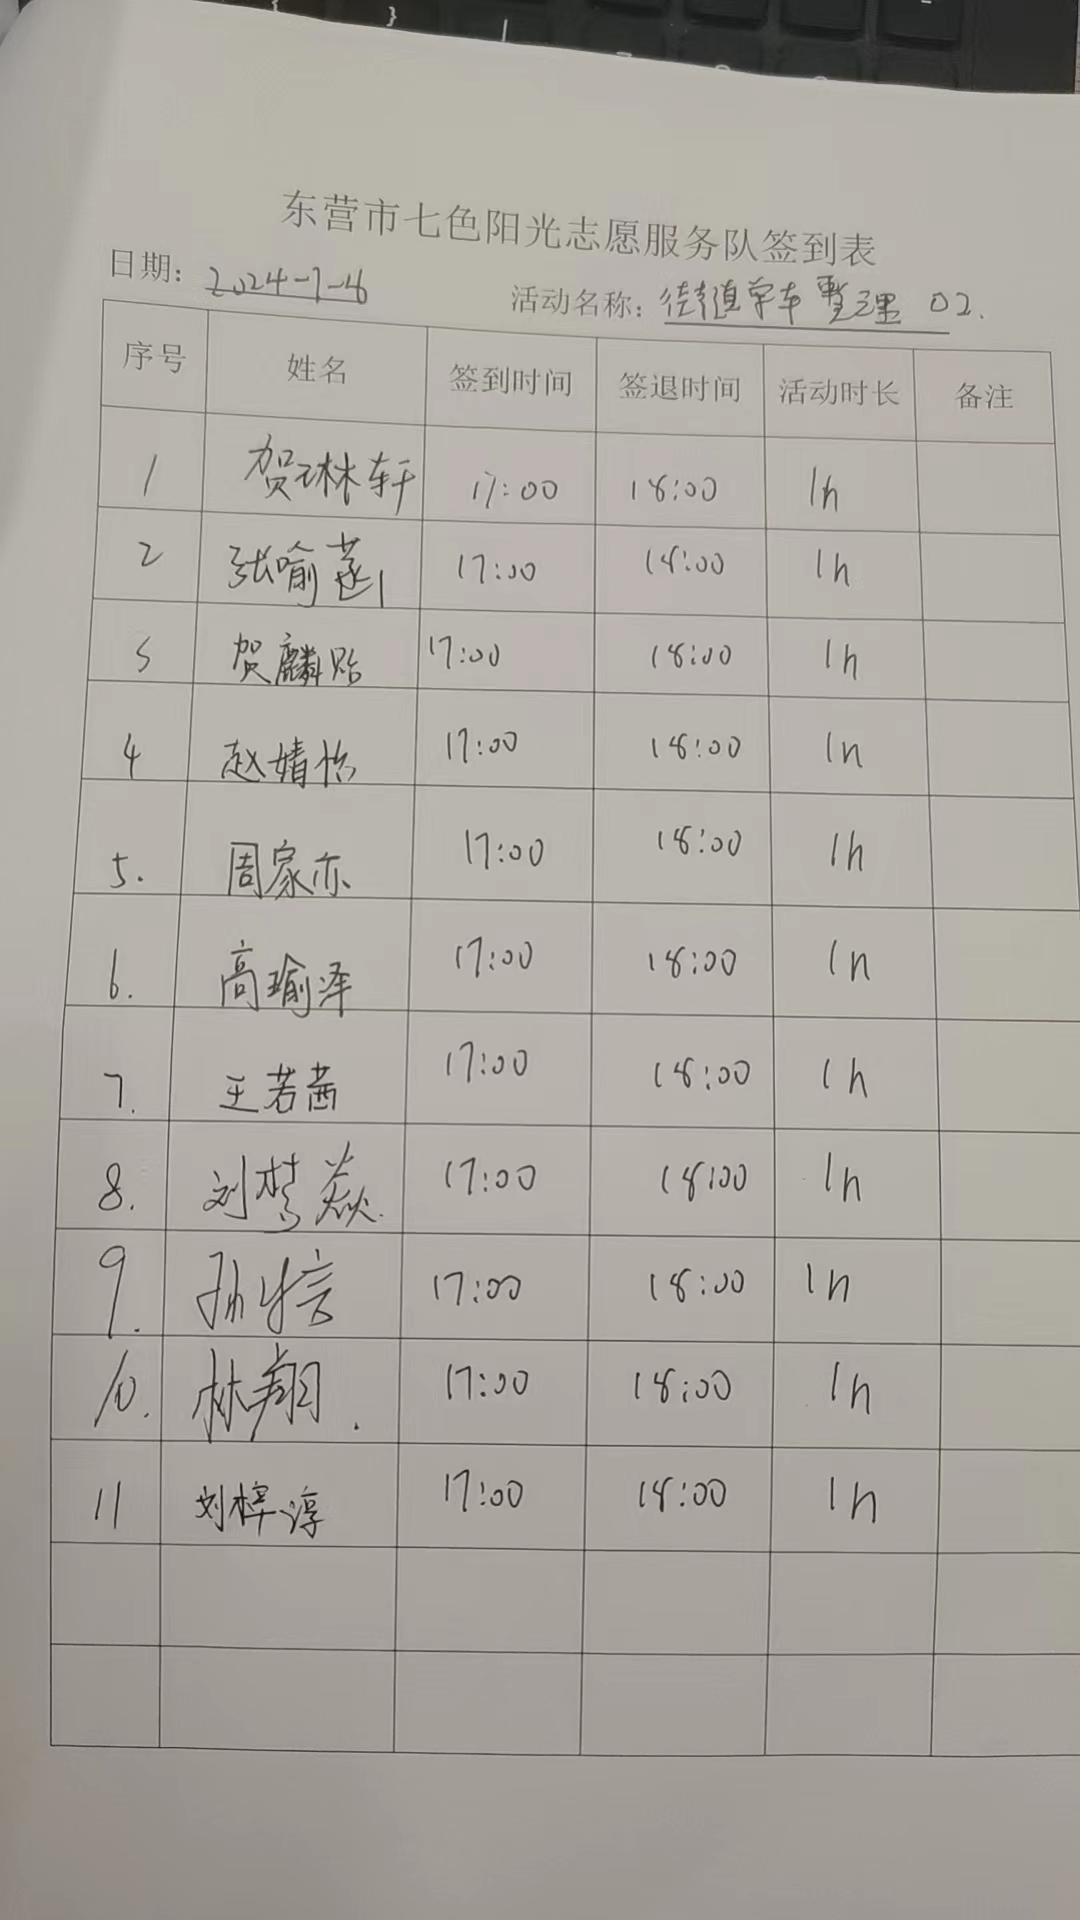 东营市七色阳光志愿服务队签到表
日期: 2024-7-6 活动名称: 街道单车整理 02.
序号 姓名 签到时间 签退时间 活动时长 备注
1 贺琳轩 17:00 18:00 1h
2 张喻 17:00 18:00 1h
3 贺麟贻 17:00 18:00 1h
4 赵婧怡 17:00 18:00 1h
5. 周家亦 17:00 18:00 1h
6. 高瑜泽 17:00 18:00 1h
7. 王若茜 17:00 18:00 1h
8. 刘梦焱. 17:00 18:00 1h
9. 孙 17:00 18:00 1h
10. 林翔. 17:00 18:00 1h
11 刘梓淳 17:00 18:00 1h